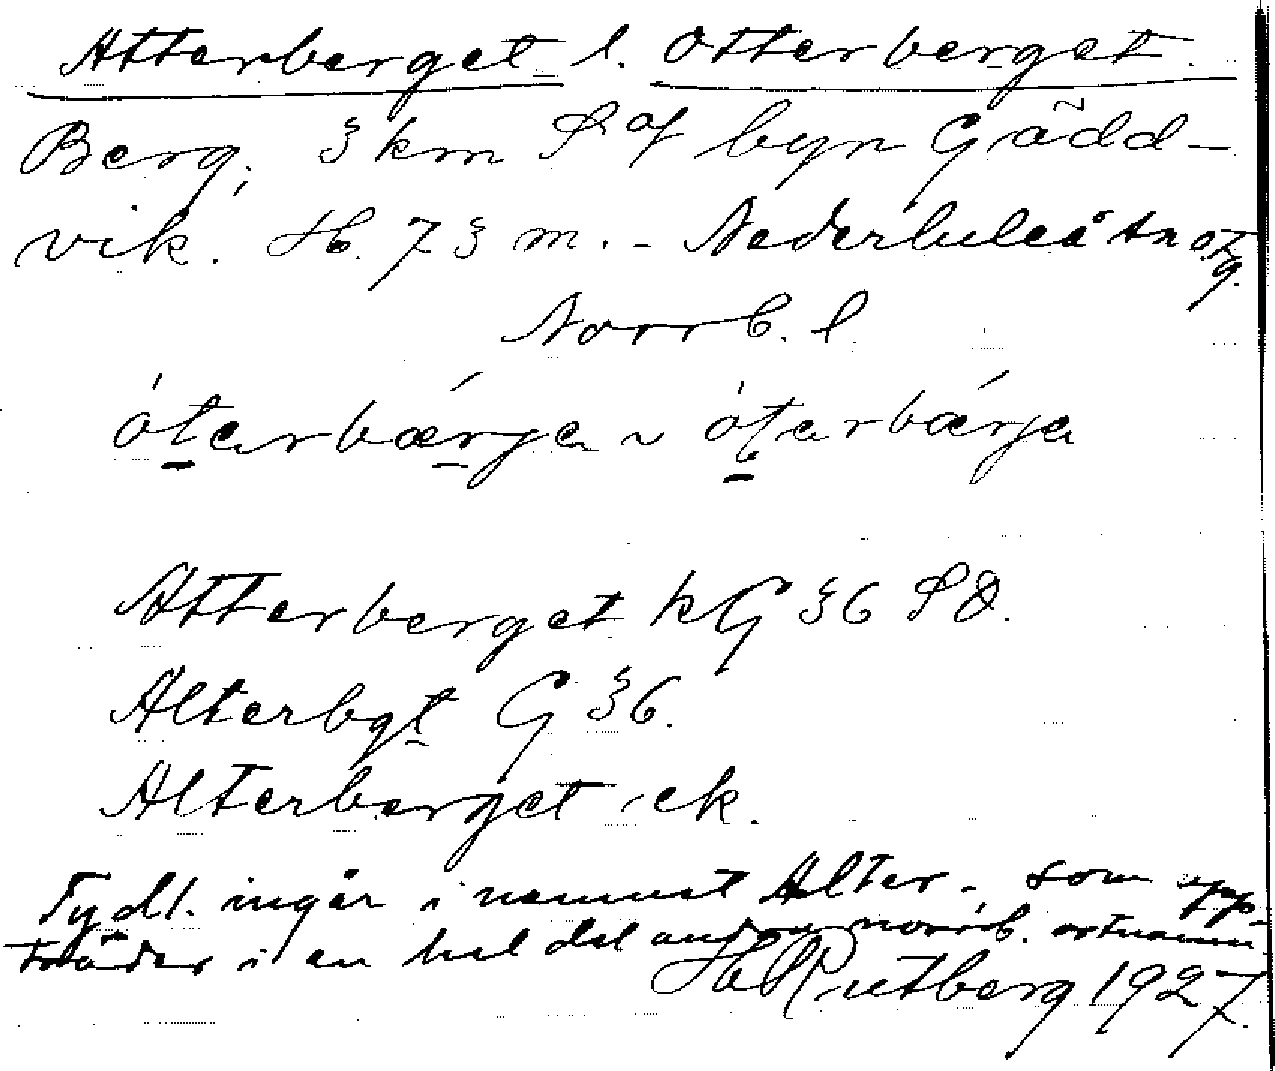 Atterberget l. Otterberget.
Berg, 3 km S of byn Gädd-
vik. H. 73 m. - Nederluleå tng
Norrb. l
óterbærja ~ óterbærja
Atterberget kG 36 SO.
Alterbgt G 36.
Alterberget ek.
Tydl. ingår i namnet Alter- som upp-
träder i en hel del andra norrb. ortnamn
H Rutberg 1927.